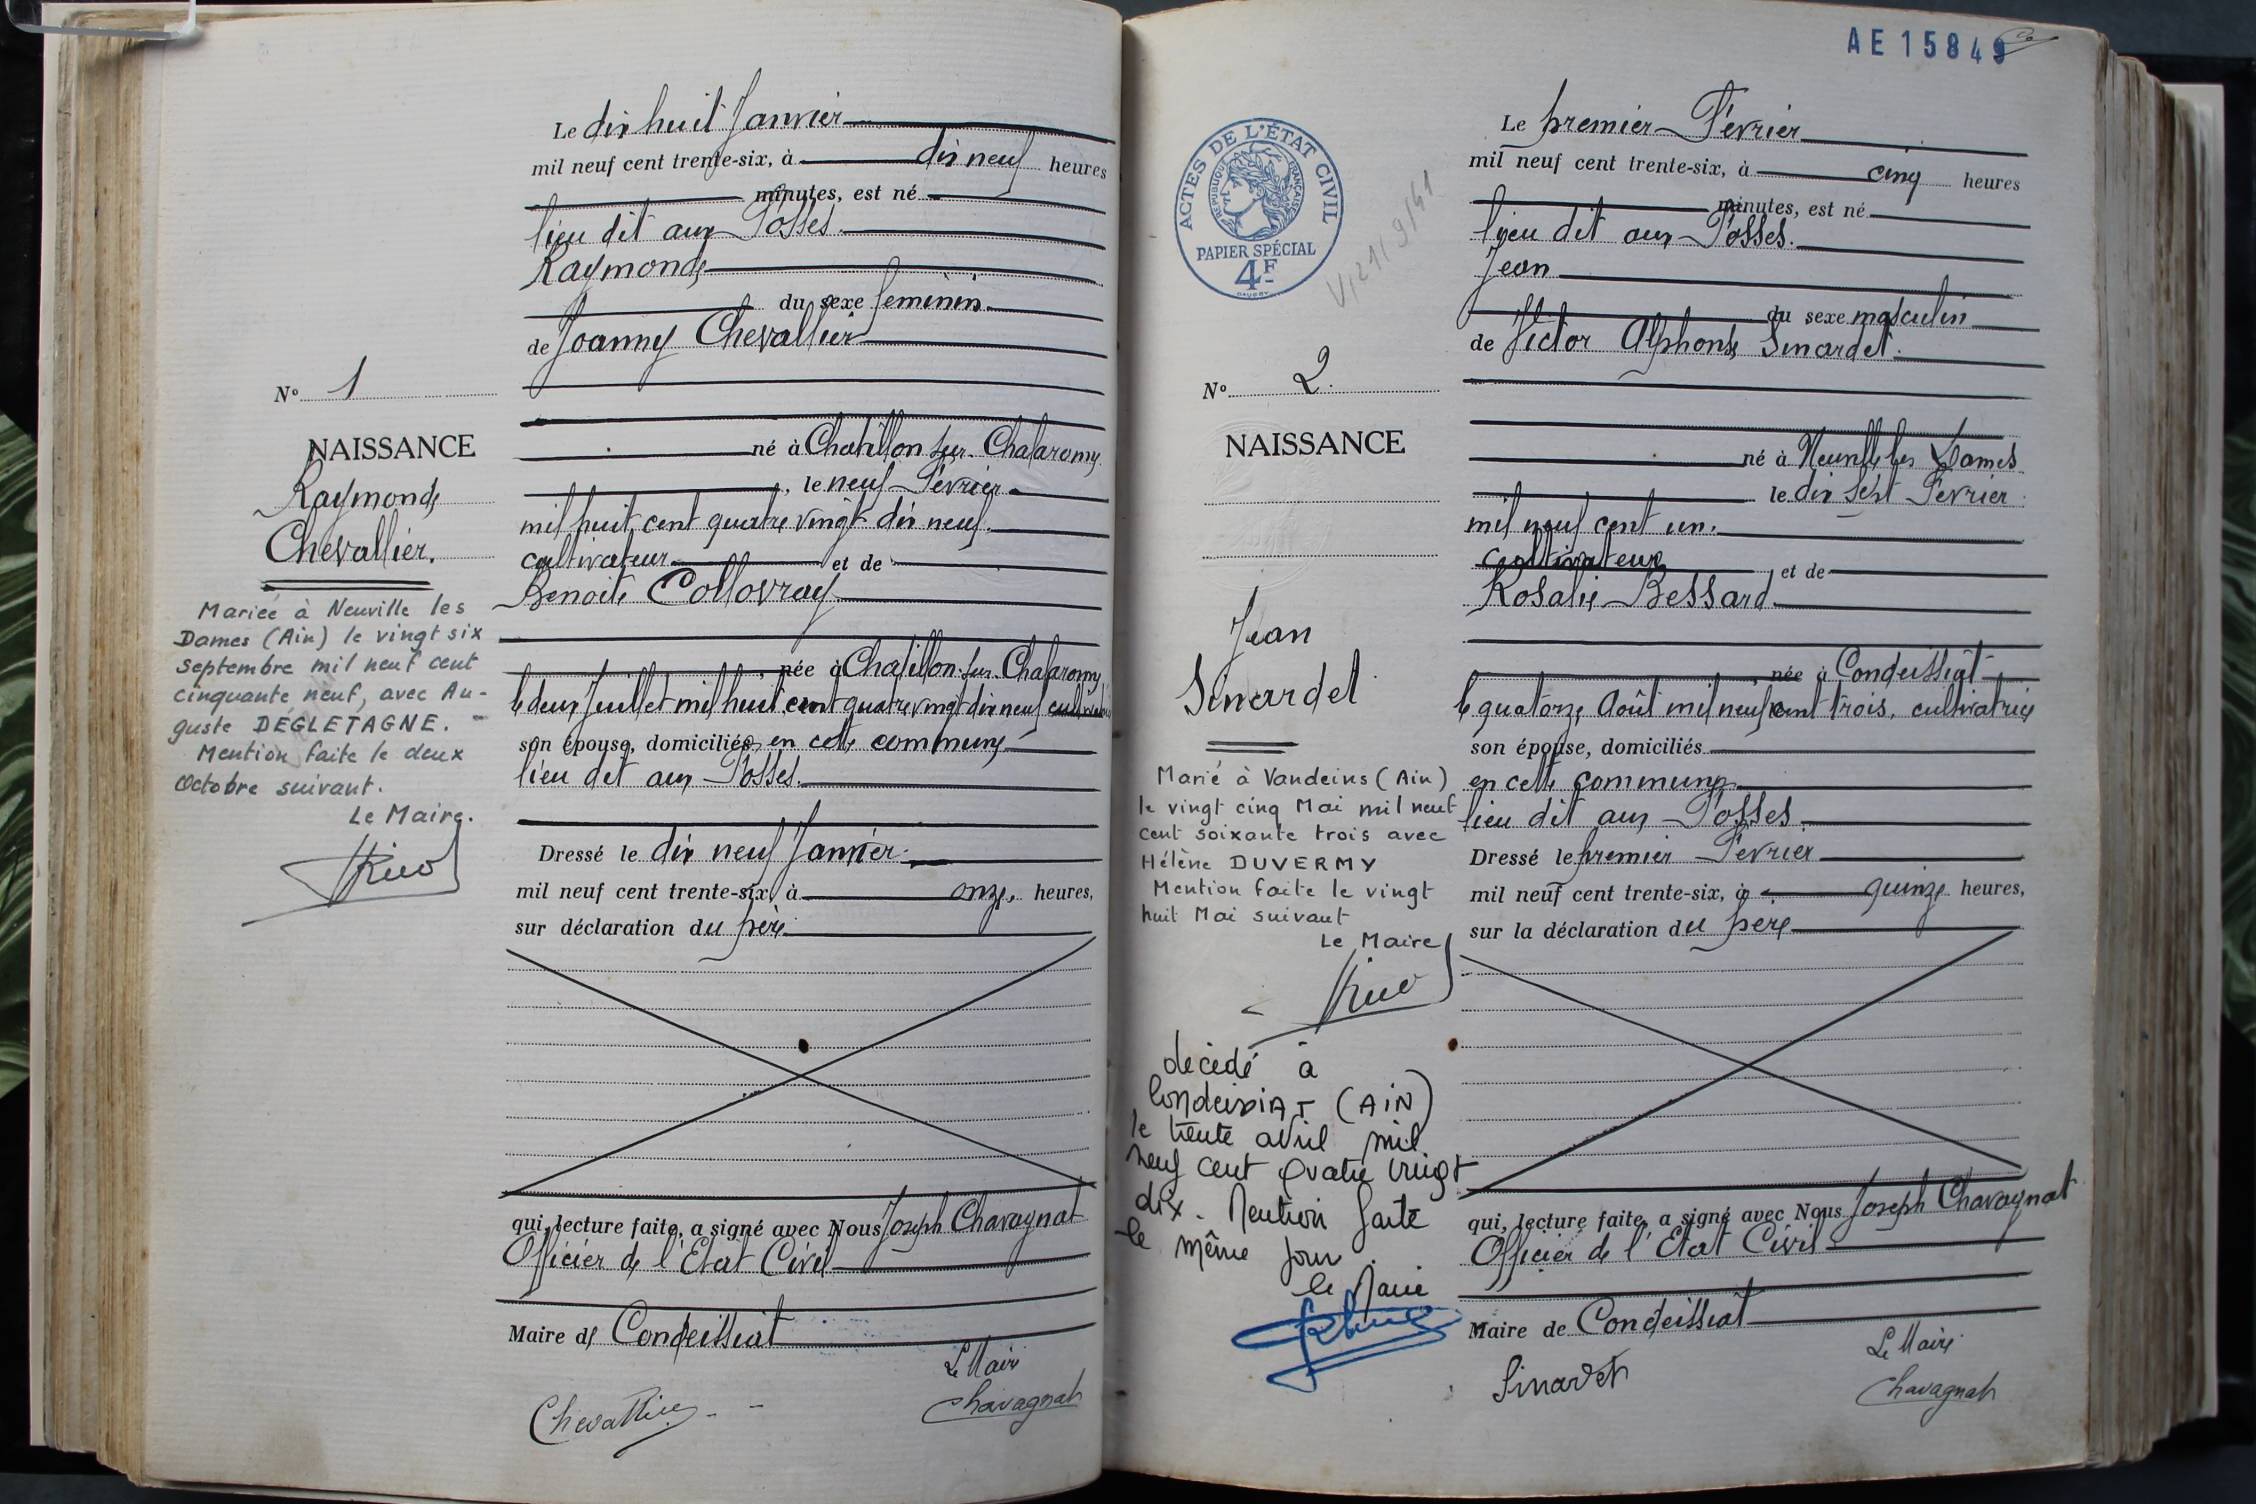 Le dix huit Janvier
mil neuf cent trente-six, à dix neuf heures
minutes, est né
lieu dit aux Fosses.
Raymonde
du sexe féminin.
de Joanny Chevallier
né à Chatillon sur Chalaronne
, le neuf Février
mil huit cent quatre vingt dix neuf.
cultivateur et de
Benoite Collovray
née à Chatillon-sur-Chalaronne
le deux Juillet mil huit cent quatre vingt dix neuf cultivatrice
son épouse, domiciliés en cette commune
lieu dit aux Fosses.
Dressé le dix neuf Janvier
mil neuf cent trente-six, à onze heures,
sur déclaration du père
qui, lecture faite, a signé avec Nous Joseph Chavagnat
Officier de l'Etat Civil
Maire de Condeissiat
Le Maire
Chevallier
Chavagnat
N° 1
NAISSANCE
Raymonde
Chevallier.
Mariée à Neuville les
Dames (Ain) le vingt six
septembre mil neuf cent
cinquante neuf, avec Au-
guste DEGLETAGNE.
Mention faite le deux
Octobre suivant.
Le Maire.
AE 15849
ACTES DE L'ÉTAT CIVIL
RÉPUBLIQUE FRANÇAISE
PAPIER SPÉCIAL
4F
N° 2.
NAISSANCE
Jean
Sinardet
Marié à Vandeins (Ain)
le vingt cinq Mai mil neuf
cent soixante trois avec
Hélène DUVERMY
Mention faite le vingt
huit Mai suivant
Le Maire
décédé à
Condeissiat (AIN)
le trente avril mil
neuf cent quatre vingt
dix. Mention faite
le même jour.
le Maire
Le premier Février
mil neuf cent trente-six, à cinq heures
minutes, est né
lieu dit aux Fosses.
Jean
du sexe masculin
de Victor Alphonse Sinardet.
né à Neuville les Dames
le dix sept Février
mil neuf cent un.
cultivateur et de
Rosalie Bessard
née à Condeissiat
le quatorze Août mil neuf cent trois, cultivatrice
son épouse, domiciliés
en cette commune
lieu dit aux Fosses
Dressé le premier Février
mil neuf cent trente-six, à quinze heures,
sur la déclaration du père
qui, lecture faite, a signé avec Nous Joseph Chavagnat
Officier de l'Etat Civil
Maire de Condeissiat
Le Maire
Sinardet
Chavagnat